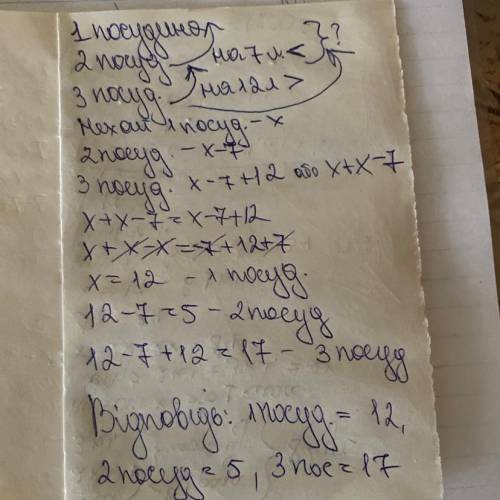 1 посудина
2 посуд. на 7 л < } ?
3 посуд. на 12 л >
Нехай 1 посуд. - x
2 посуд. - x-7
3 посуд. x-7+12 або x+x-7
x+x-7=x-7+12
x+x-x=-7+12+7
x=12 - 1 посуд.
12-7=5 - 2 посуд
12-7+12=17 - 3 посуд
Відповідь: 1 посуд. = 12,
2 посуд = 5, 3 пос = 17